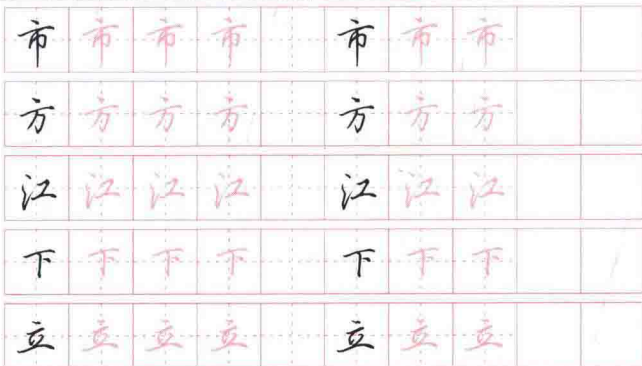 市市市市市市市
方方方方方方方
江江江江江江江
下下下下下下下
立立立立立立立